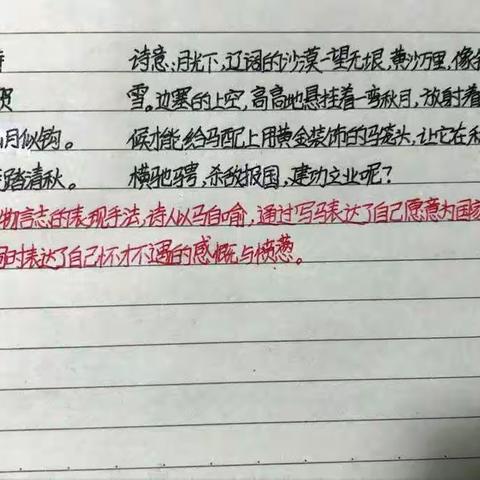 诗意:月光下,辽阔的沙漠一望无垠,黄沙万里,像
贺 雪。边塞的上空,高高地悬挂着一弯秋月,放射着
月似钩。 候才能,给马配上用黄金装饰的马笼头,让它在
踏清秋。 横驰骋,杀敌报国,建功立业呢?
物言志的表现手法,诗人以马自喻,通过写马表达了自己愿意为国
同时表达了自己怀才不遇的感慨与愤懑。